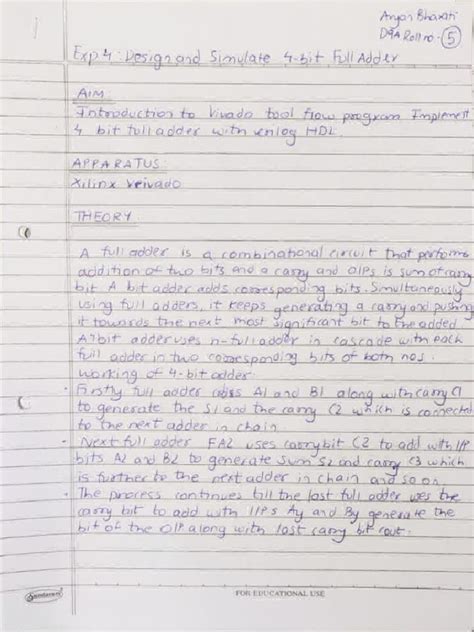 Aryan Bharati
D9A Roll no - 5
Exp 4: Design and Simulate 4-bit Full Adder
AIM:
Introduction to Vivado tool flow program Implement
4 bit full adder with verilog HDL.
APPARATUS:
Xilinx Veivado
THEORY:
A full adder is a combinational circuit that performs
addition of two bits and a carry and o/ps is sum of carry
bit. A bit adder adds corresponding bits. Simultaneously
using full adders, it keeps generating a carry and pushing
it towards the next most significant bit to the added
A bit adder uses n-full adder in cascade with each
full adder in two corresponding bits of both nos.
Working of 4-bit adder
• Firstly full adder A1 and B1 along with carry C1
to generate the S1 and the carry C2 which is connected
to the next adder in chain.
• Next full adder FA2 uses carry bit C2 to add with I/P
bits A2 and B2 to generate sum S2 and carry C3 which
is further to the next adder in chain and so on.
• The process continues till the last full adder uses the
carry bit to add with I/Ps Ay and By generate the
bit of the O/P along with last carry bit Cout.
Sundaram
FOR EDUCATIONAL USE